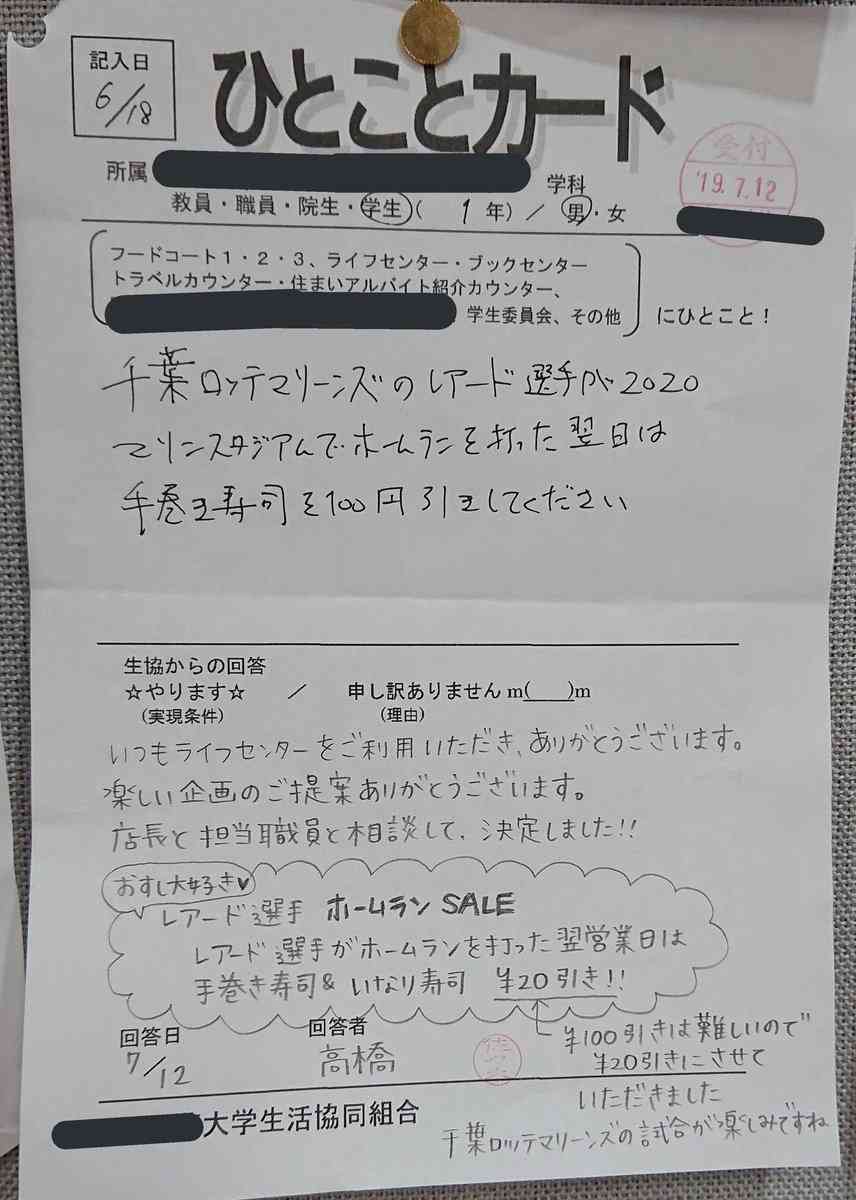 記入日
6/18
ひとことカード
受付
'19.7.12
所属
学科
教員・職員・院生・学生( 1 年) / 男・女
フードコート1・2・3、ライフセンター・ブックセンター
トラベルカウンター・住まいアルバイト紹介カウンター、
学生委員会、その他
にひとこと!
千葉ロッテマリーンズのレアード選手がZOZO
マリンスタジアムでホームランを打った翌日は
手巻き寿司を100円引きしてください
生協からの回答
☆やります☆ / 申し訳ありません m(___)m
(実現条件) (理由)
いつもライフセンターをご利用いただき、ありがとうございます。
楽しい企画のご提案ありがとうございます。
店長と担当職員と相談して、決定しました!!
おすし大好き♥
レアード選手 ホームラン SALE
レアード選手がホームランを打った翌営業日は
手巻き寿司& いなり寿司 ¥20引き!!
¥100引きは難しいので
¥20引きにさせて
いただきました
千葉ロッテマリーンズの試合が楽しみですね
回答日
7/12
回答者
高橋
大学生活協同組合